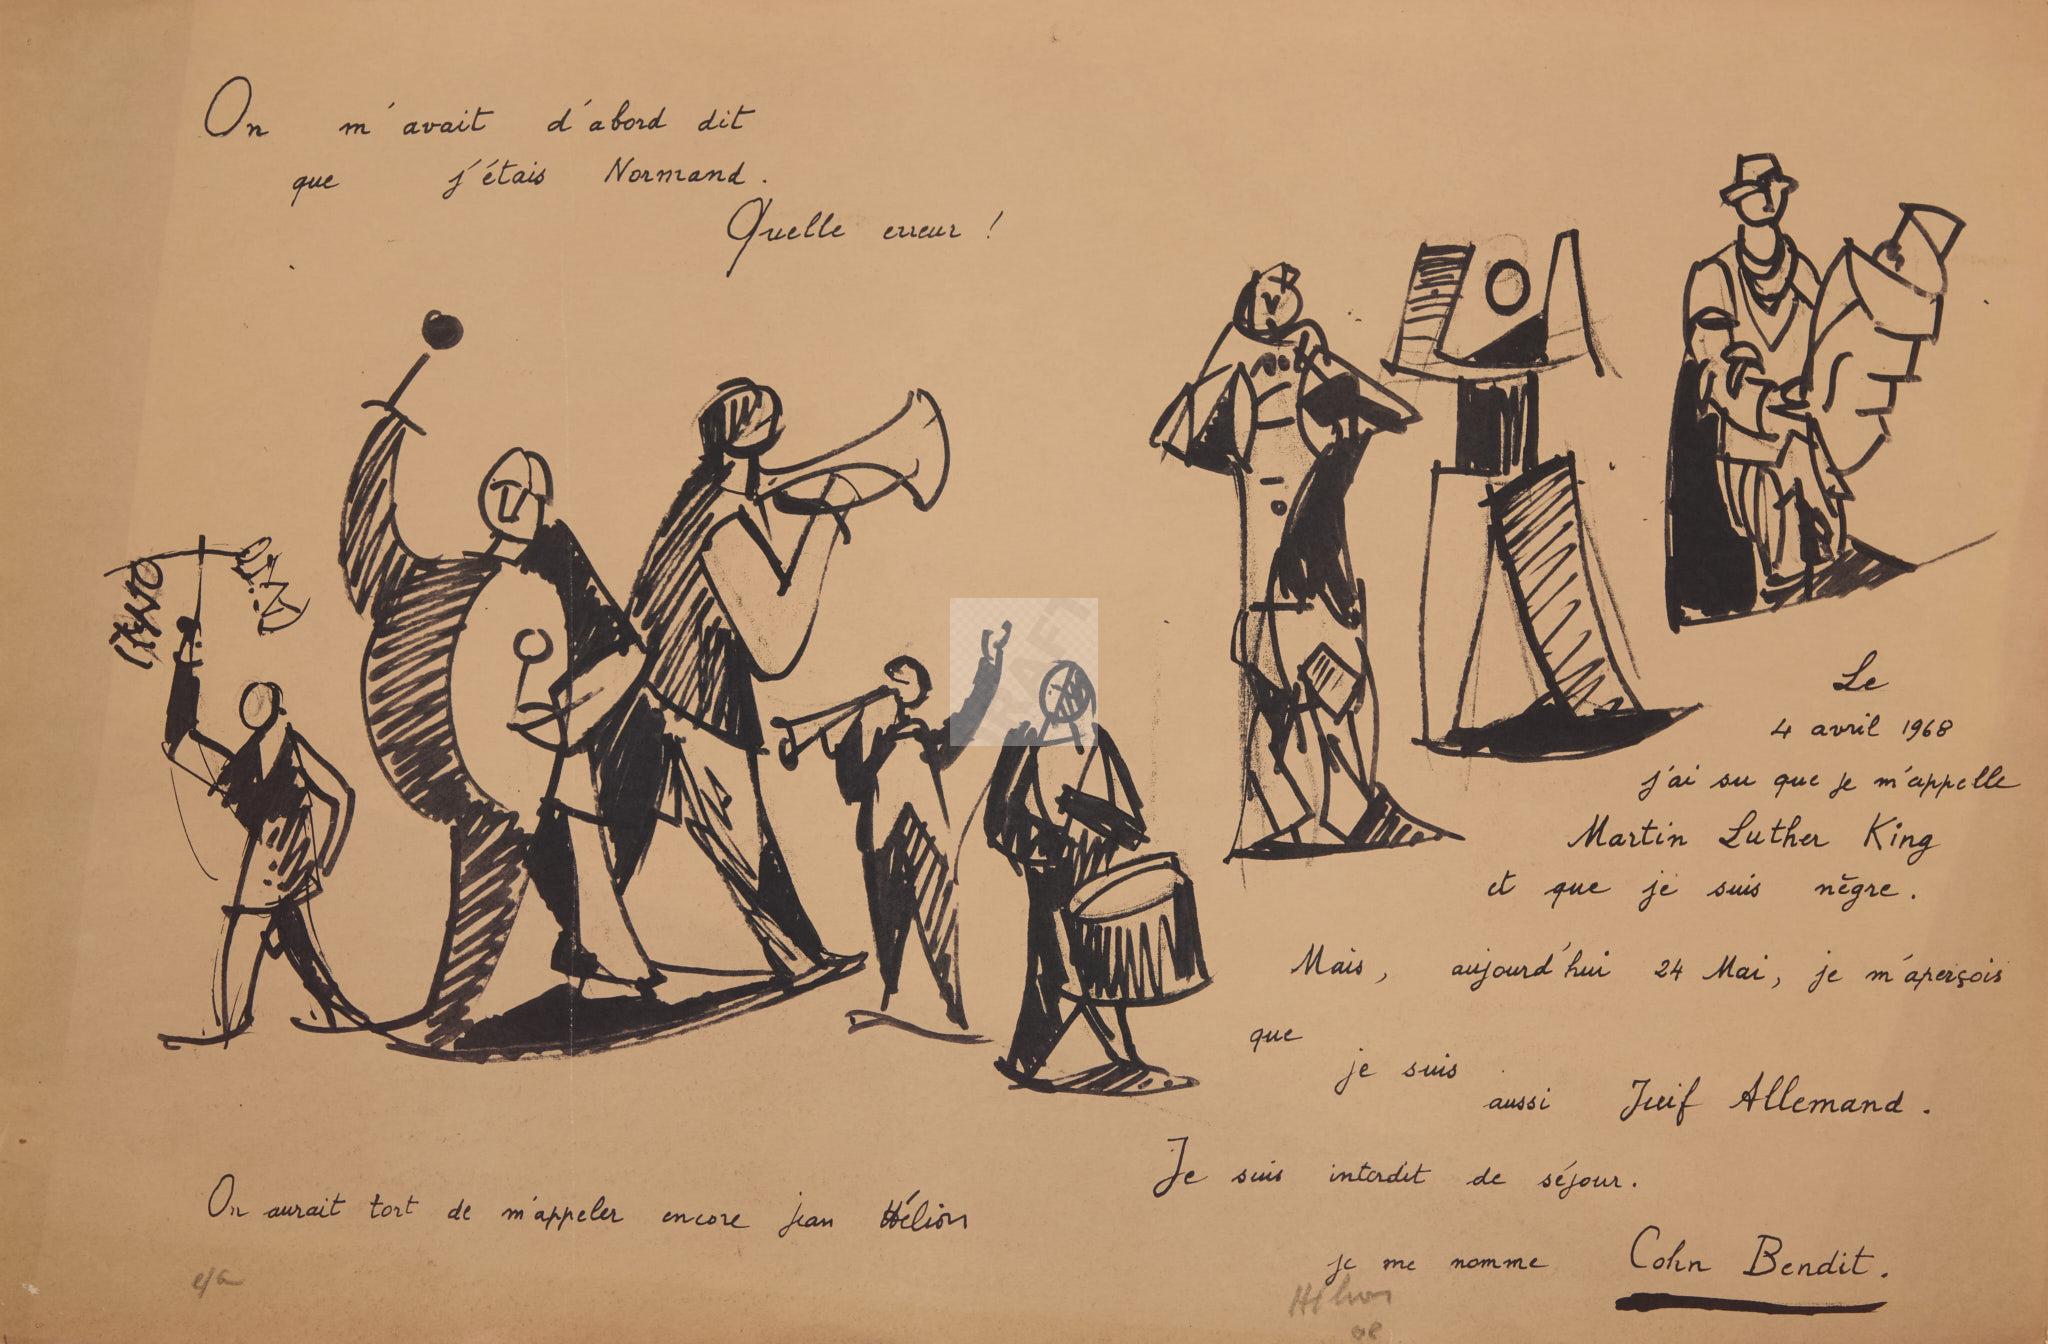 On m'avait d'abord dit
que j'étais Normand.
Quelle erreur !
Le
4 avril 1968
j'ai su que je m'appelle
Martin Luther King
et que je suis nègre.
Mais, aujourd'hui 24 Mai, je m'aperçois
que
je suis
aussi Juif Allemand.
Je suis interdit de séjour.
je me nomme Cohn Bendit.
On aurait tort de m'appeler encore jean Hélion
e/a
Hélion